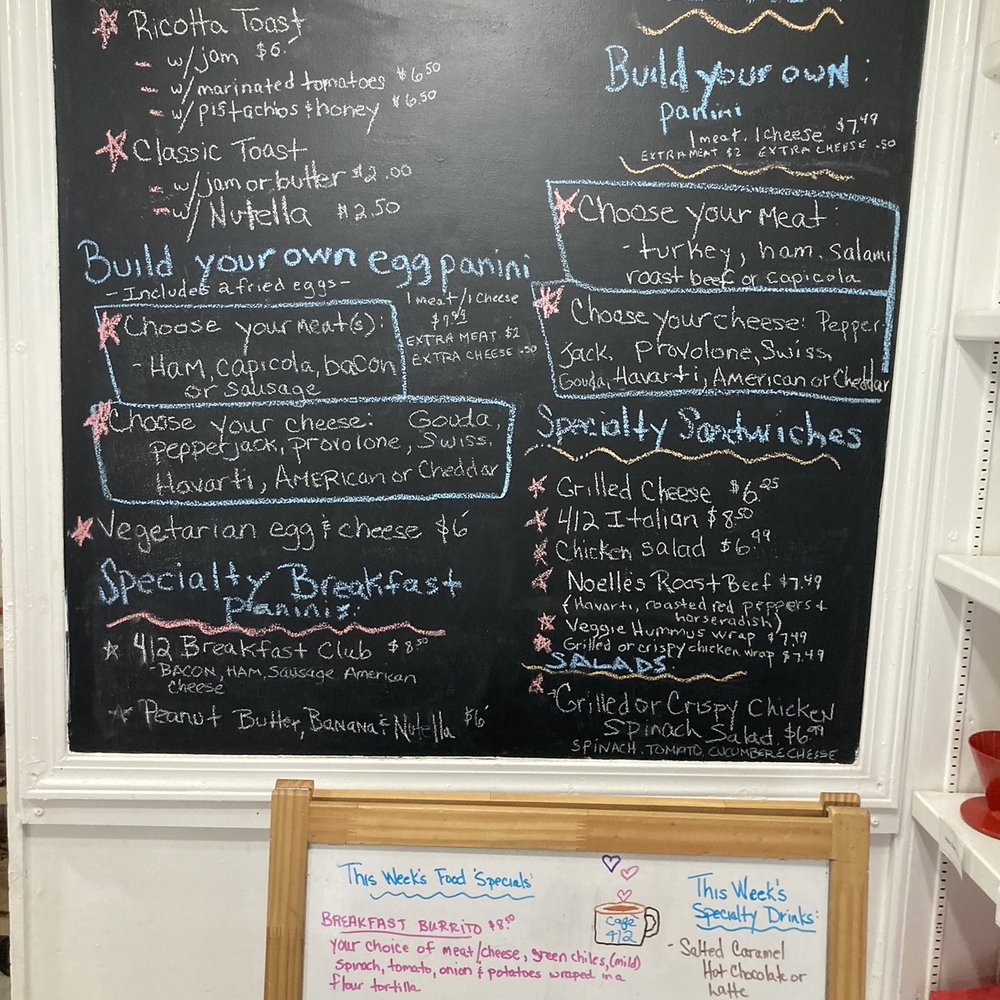 Ricotta Toast
- w/jam $6
- w/marinated tomatoes $6.50
- w/pistachios & honey $6.50
Classic Toast
- w/jam or butter $2.00
- w/Nutella $2.50
Build your own egg panini
- Includes 2 fried eggs -
1 meat/1 cheese
EXTRA MEAT $2
EXTRA CHEESE .50
Choose your meat(s):
- Ham, capicola, bacon
or sausage
Choose your cheese: Gouda,
pepperjack, provolone, Swiss,
Havarti, American or Cheddar
Vegetarian egg & cheese $6
Specialty Breakfast
paninis:
412 Breakfast Club $8.50
- BACON, HAM, Sausage American
Cheese
Peanut Butter, Banana & Nutella $6
Build your own:
panini
1 meat, 1 cheese $7.49
EXTRA MEAT $2 EXTRA CHEESE .50
Choose your meat:
- turkey, ham, salami
roast beef or capicola
Choose your cheese: Pepper-
Jack, Provolone, Swiss,
Gouda, Havarti, American or Cheddar
Specialty Sandwiches
Grilled Cheese $6.25
412 Italian $8.50
Chicken salad $6.99
Noelle's Roast Beef $7.49
(Havarti, roasted red peppers +
horseradish)
Veggie Hummus wrap $7.49
Grilled or crispy chicken wrap $7.49
SALADS:
Grilled or Crispy Chicken
Spinach Salad $6.99
SPINACH, TOMATO, CUCUMBER & CHEESE
This Week's Food Specials
BREAKFAST BURRITO $8.50
Your choice of meat/cheese, green chiles, (mild)
Spinach, tomato, onion & potatoes wraped in a
flour tortilla.
Cafe
412
This Week's
Specialty Drinks:
- Salted Caramel
Hot Chocolate or
Latte